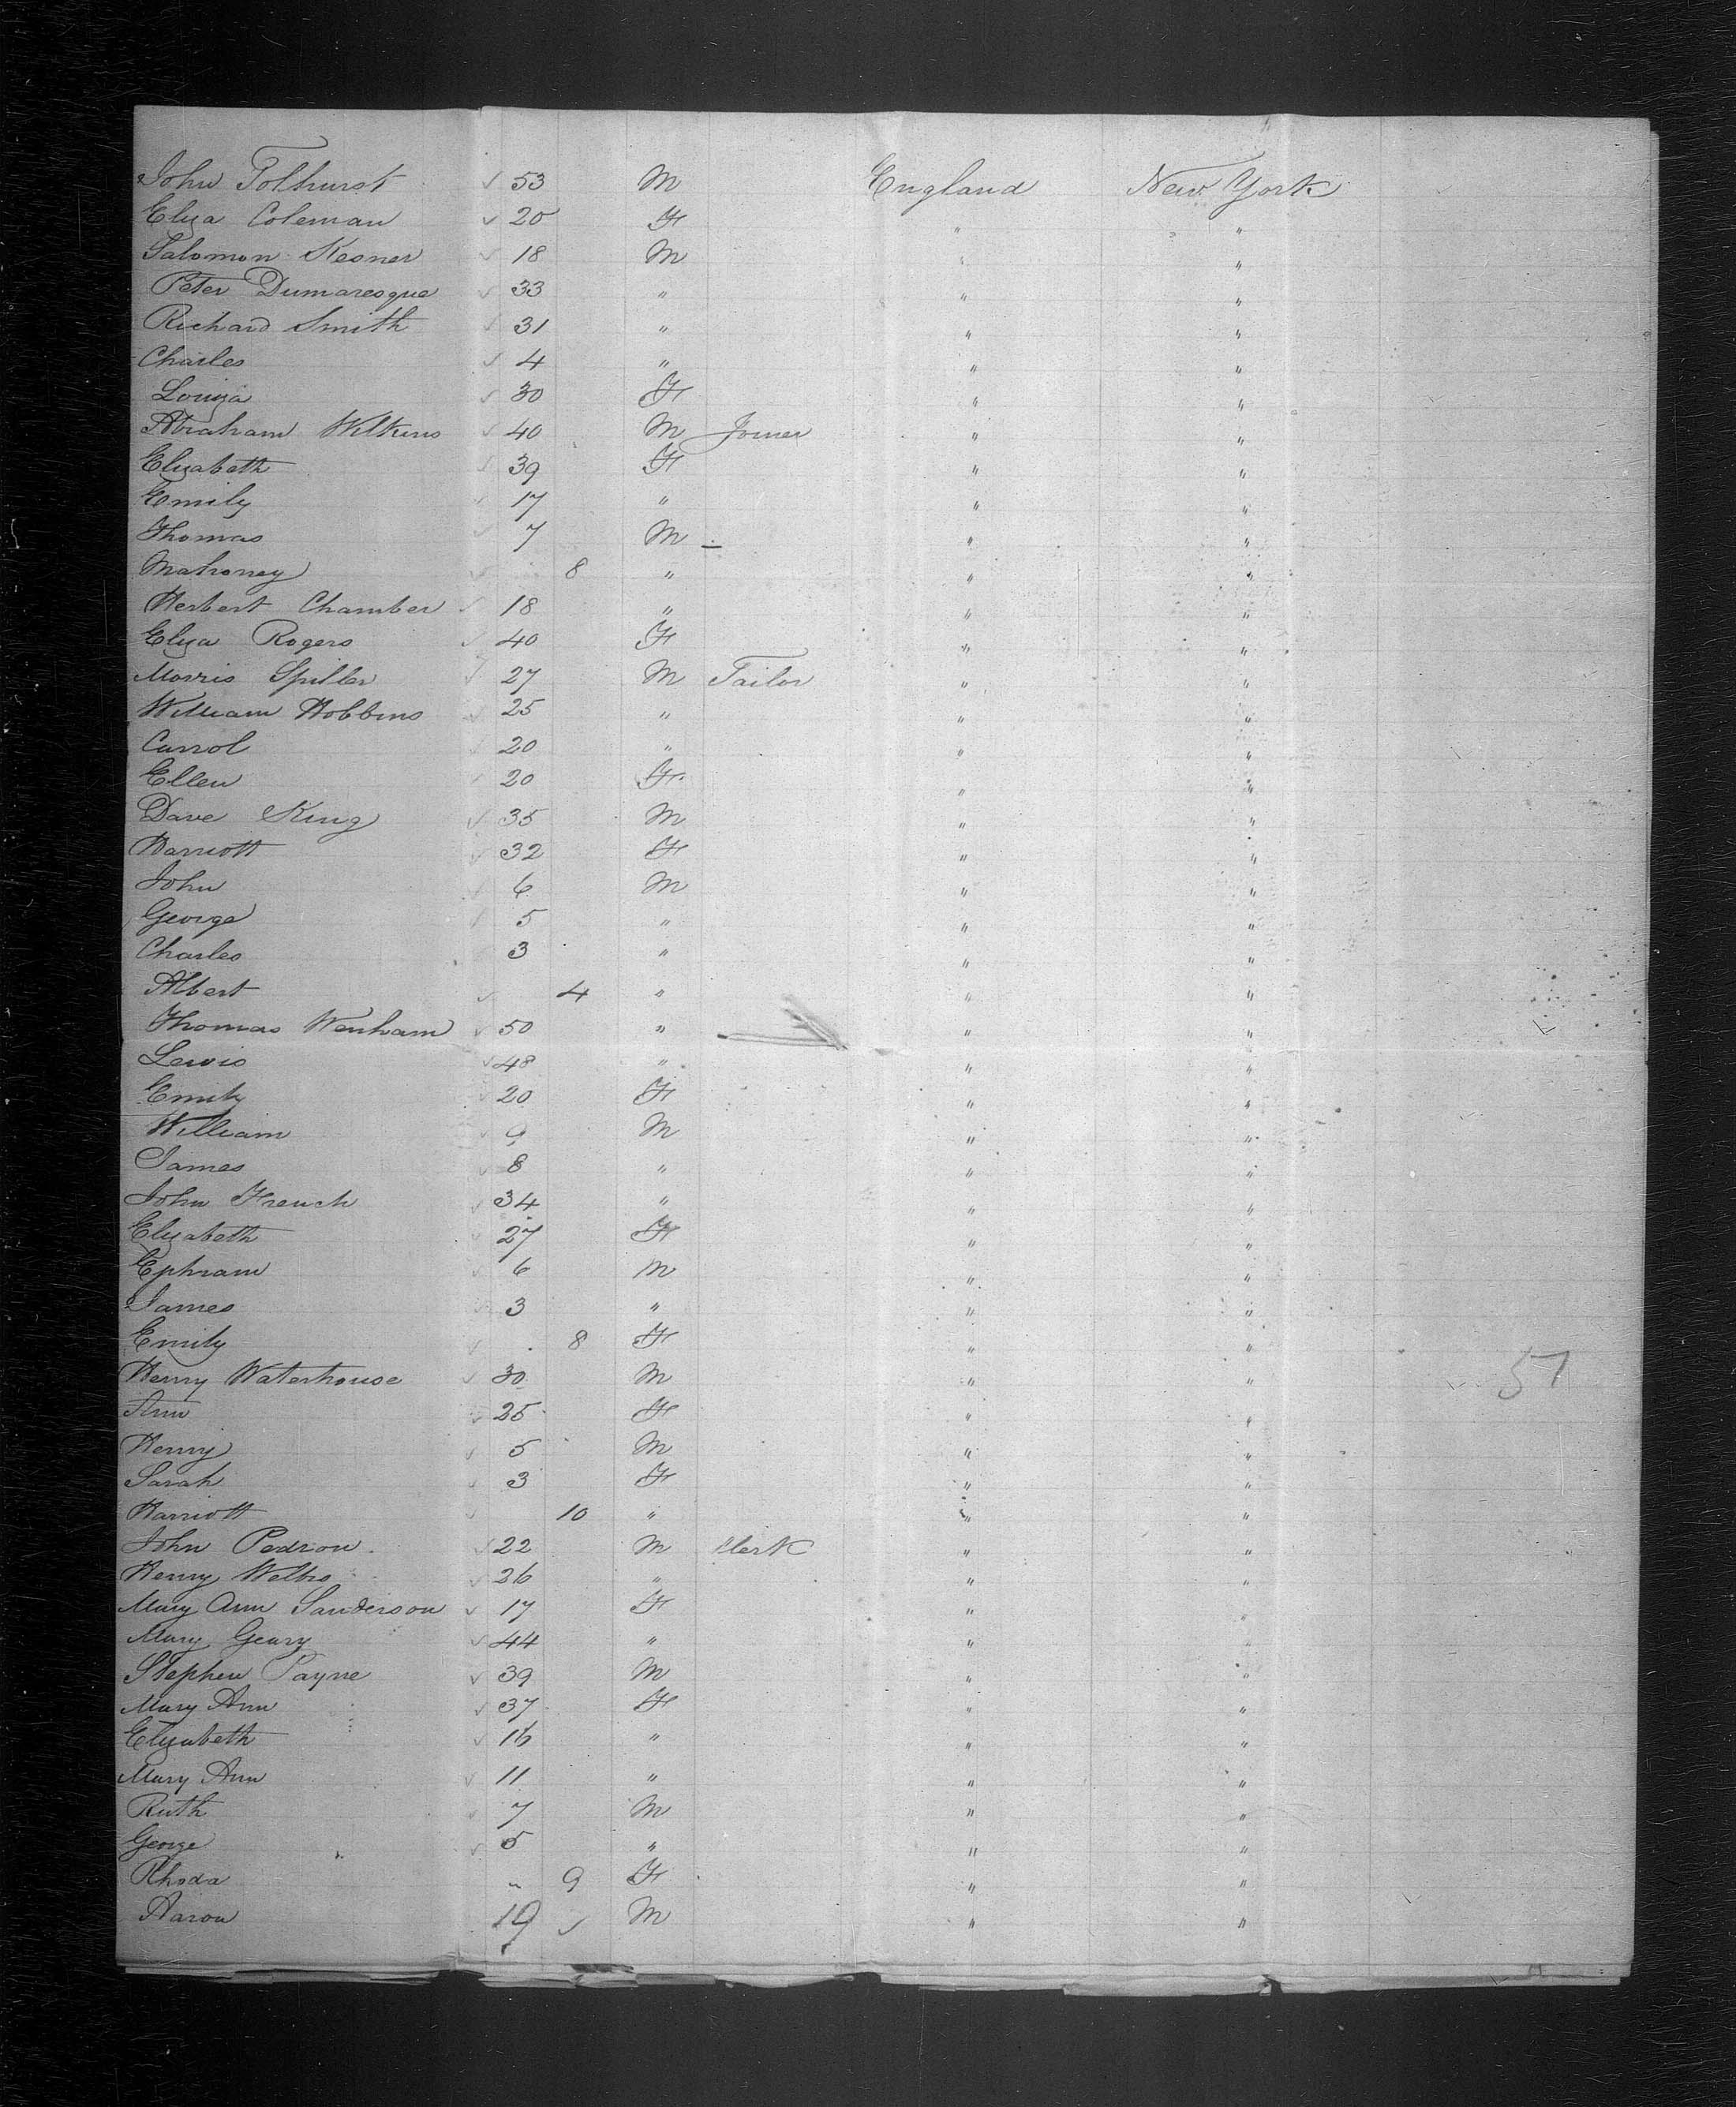 John Tolhurst 53 M England New York
Eliza Coleman 20 F " "
Salomon Kesner 18 M " "
Peter Dumaresque 33 " " "
Richard Smith 31 " " "
Charles 4 " " "
Louiza 30 F " "
Abraham Wilkins 40 M Joiner " "
Elizabeth 39 F " "
Emily 17 " " "
Thomas 7 M – " "
Mahoney 8 " " "
Herbert Chamber 18 " " "
Eliza Rogers 40 F " "
Morris Spiller 27 M Tailor " "
William Hobbins 25 " " "
Carrol 20 " " "
Ellen 20 F " "
Dave King 35 M " "
Harriott 32 F " "
John 6 M " "
George 5 " " "
Charles 3 " " "
Albert 4 " " "
Thomas Wenham 50 " " "
Lewis 48 " " "
Emily 20 F " "
William 9 M " "
James 8 " " "
John French 34 " " "
Elizabeth 27 F " "
Ephram 6 M " "
James 3 " " "
Emily 8 F " "
Henry Waterhouse 30 M " " 57
Ann 25 F " "
Henry 5 M " "
Sarah 3 F " "
Harriott 10 " " "
John Pedrow 22 M Clerk " "
Henry 26 " " "
Mary Ann Sanderson 17 F " "
Mary Geary 44 " " "
Stephen Payne 39 M " "
Mary Ann 37 F " "
Elizabeth 16 " " "
Mary Ann 11 " " "
Ruth 7 M " "
George 5 " " "
Rhoda " 9 F " "
Aaron 19 M " "